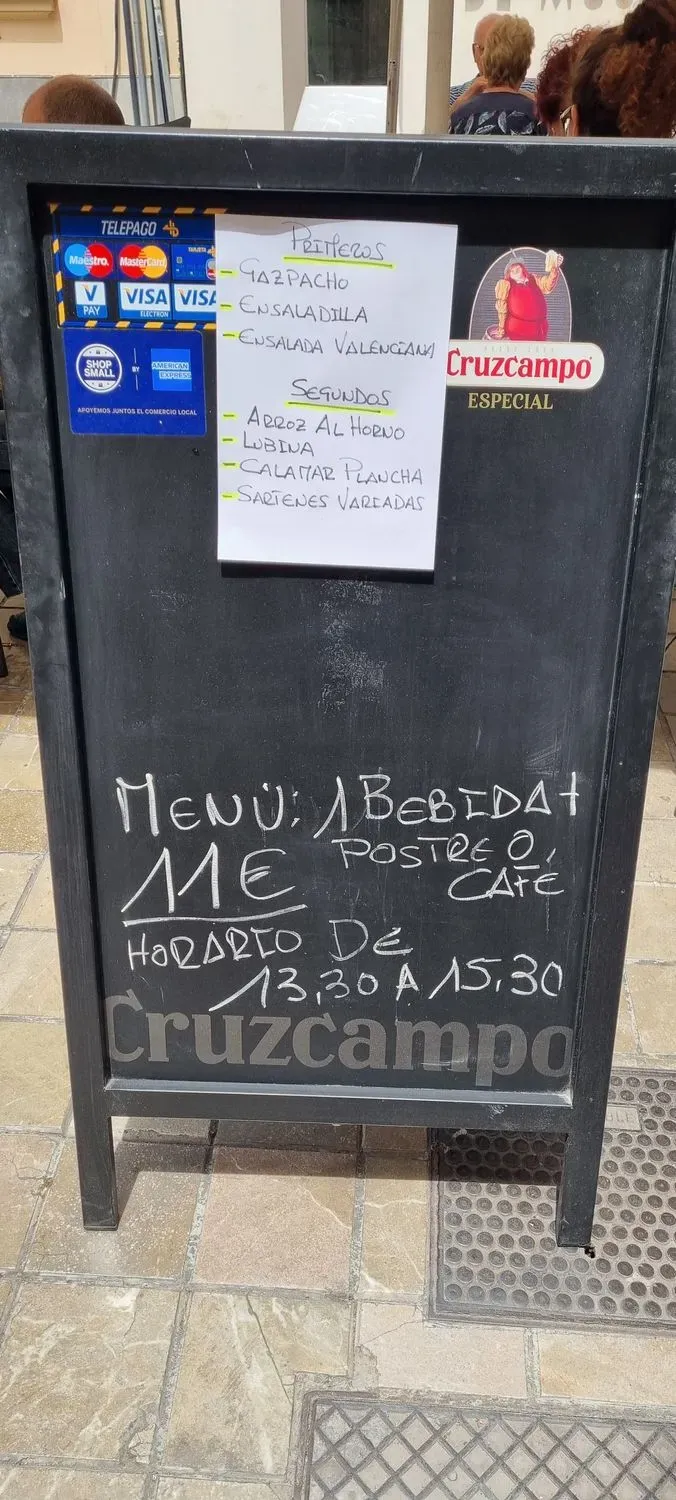 DE MUS
TELEPAGO
Maestro
MasterCard
TARJETA
V PAY
VISA
ELECTRON
VISA
SHOP SMALL
BY
AMERICAN EXPRESS
APOYEMOS JUNTOS EL COMERCIO LOCAL
PRIMEROS
- GAZPACHO
- ENSALADILLA
- ENSALADA VALENCIANA
SEGUNDOS
- ARROZ AL HORNO
- LUBINA
- CALAMAR PLANCHA
- SARTENES VARIADAS
Cruzcampo
ESPECIAL
MENÚ: 1 BEBIDA +
11€ POSTRE O
CAFÉ
HORARIO DE
13,30 A 15,30
Cruzcampo